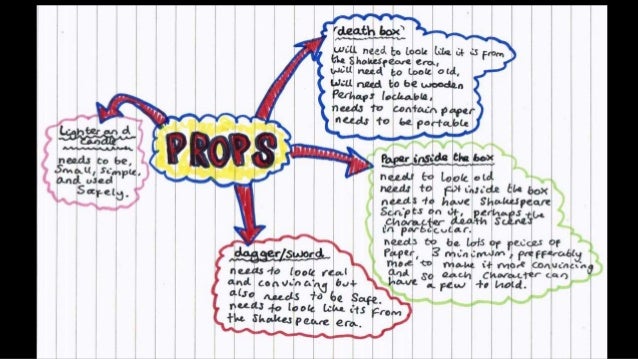 PROPS
'death box'
will need to look like it is from
the Shakespeare era,
will need to look old,
Will need to be wooden
Perhaps lockable,
needs to contain paper
needs to be portable
Lighter and
Candle
needs to be,
Small, simple,
and used
Safely.
Paper inside the box
needs to look old
needs to fit inside the box
needs to have Shakespeare
Scripts on it, perhaps the
Character death Scenes
In particular.
needs to be lots of peices of
Paper, 3 minimum, prefferably
more to make it more convincing
and so each Character can
have a few to hold.
dagger/sword
needs to look real
and convincing but
also needs to be Safe.
needs to look like its from
the Shakespeare era.